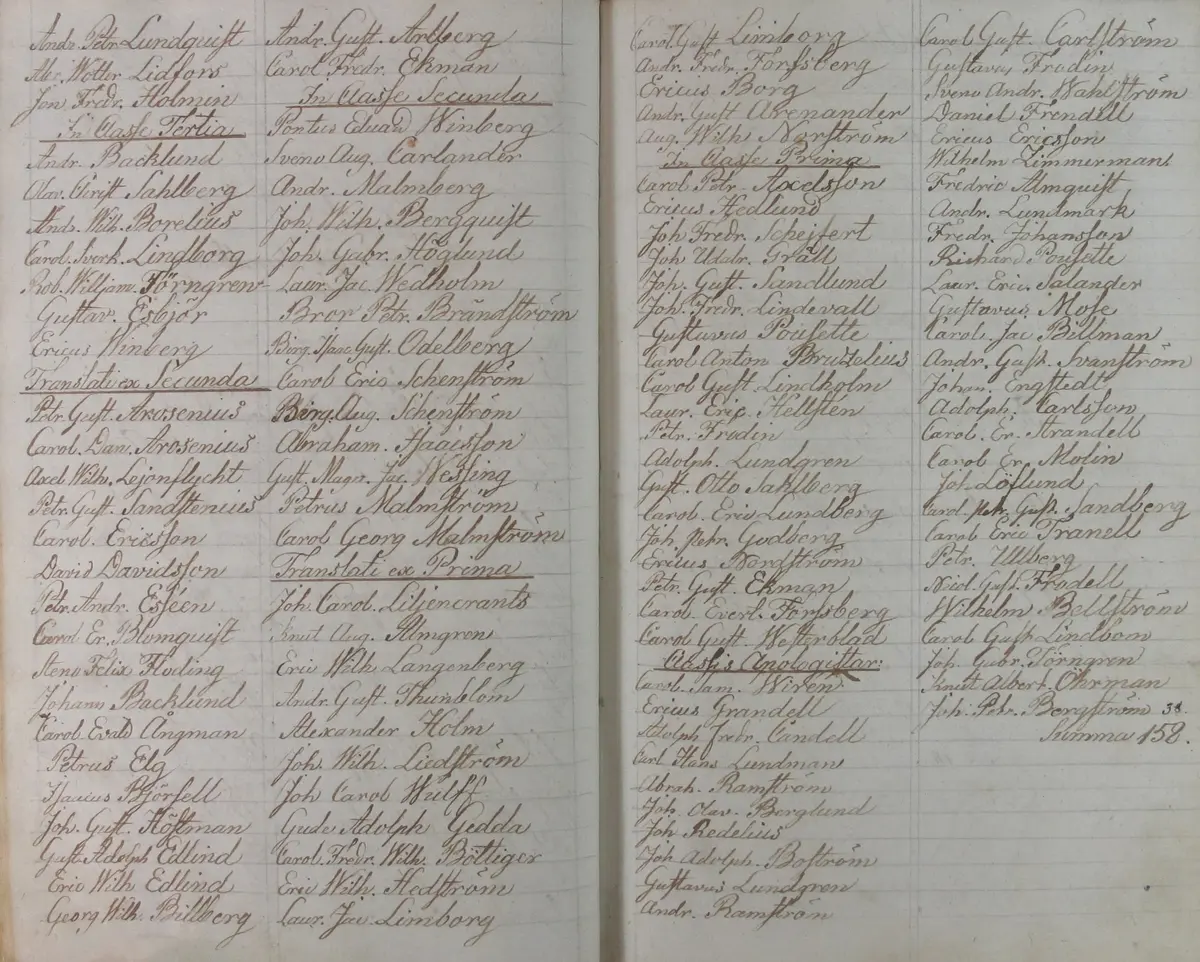 Andr. Petr. Lundquist
Alex. Wolter Lidfors
Jon Fredr. Holmin
In Classe Tertia
Andr. Backlund
Olav. Christ Sahlberg
Andr. Wilh. Borelius
Carol. Sverk. Lindborg
Rob. Williám. Förngren
Gustav. Esbjör
Ericus Winberg
Translati ex Secunda
Petr. Gust. Arosenius
Carol. Dan. Arosenius
Axel Wilh. Lejonflycht
Petr. Gust. Sandstenius
Carol. Ericsson
David Davidsson
Petr. Andr. Eséen
Carol Er. Blomquist
Steno Felix Floding
Johann Backlund
Carol. Evald Ångman
Petrus Elg
Isacius Björsell
Joh. Gust. Höstman
Gust. Adolph Edlind
Eric Wilh Edlind
Georg Wilh. Billberg
Andr. Gust. Arlberg
Carol Fredr. Ekman
In Classe Secunda
Pontus Eduard Winberg
Sveno Aug. Carlander
Andr. Malmberg
Joh. Wilh. Bergquist
Joh. Gabr. Höglund
Laur. Jac. Wedholm
Bror Petr. Brändström
Birg. Isaac Gust. Odelberg
Carol Eric Schenström
Birg. Aug. Schenström
Abraham. Isaacsson
Gust. Magn. Jac. Wessing
Petrus Malmström
Carol Georg Malmström
Translati ex Prima
Joh. Carol. Liljencrants
Knut Aug. Almgren
Eric Wilh. Langenberg
Andr. Gust. Thunblom
Alexander Holm
Joh. Wilh. Liedström
Joh Carol Wulff
Gude Adolph Gedda
Carol. Fredr. Wilh. Böttiger
Eric Wilh. Hedström
Laur. Jac. Limborg
Carol. Gust Limborg
Andr. Fredr. Forssberg
Ericus Borg
Andr. Gust Arenander
Aug. Wilh Norström
In Classe Prima
Carol Petr. Axelsson
Ericus Hedlund
Joh Fredr. Scheifert
Joh Udalr. Gräll
Joh. Gust. Sandlund
Joh. Fredr. Lindevall
Gustavus Pousette
Carol Anton Bruzelius
Carol Gust. Lindholm
Laur. Eric. Hellsten
Petr. Frodin
Adolph. Lundgren
Gust. Otto Sahlberg
Carol. Eric Lundberg
Joh. Petr. Godberg
Ericus Nordström
Petr. Gust. Ekman
Carol. Evert. Forssberg
Carol Gust. Westerblad
Classis Apologistar:
Carol. Sam. Wiren
Ericus Grandell
Adolph Fredr. Candell
Carl Hans Lundman
Abrah. Ramström
Joh. Olav. Berglund
Joh. Redelius
Joh. Adolph. Boström
Gustavus Lundgren
Andr. Ramström
Carol Gust. Carlström
Gustavus Frodin
Sveno Andr. Wahlström
Daniel Frendell
Ericus Ericsson
Wilhelm Zimmerman
Fredric Almquist
Andr. Lundmark
Fredr. Johansson
Richard Pousette
Laur. Eric. Salander
Gustavus Mose
Carol. Jac Billman
Andr. Gust. Svanström
Johan. Engstedt
Adolph. Carlsson
Carol. Er. Strandell
Carol Er. Molin
Joh. Löflund
Carol. Petr. Gust. Sandberg
Carol Eric Tranell
Petr. Ullberg
Nicol. Gust. Frodell
Wilhelm Bellström
Carol Gust Lindbom
Joh. Gabr. Törngren
Knut Albert. Öhrman
Joh. Petr. Bergström 38
Summa 158.